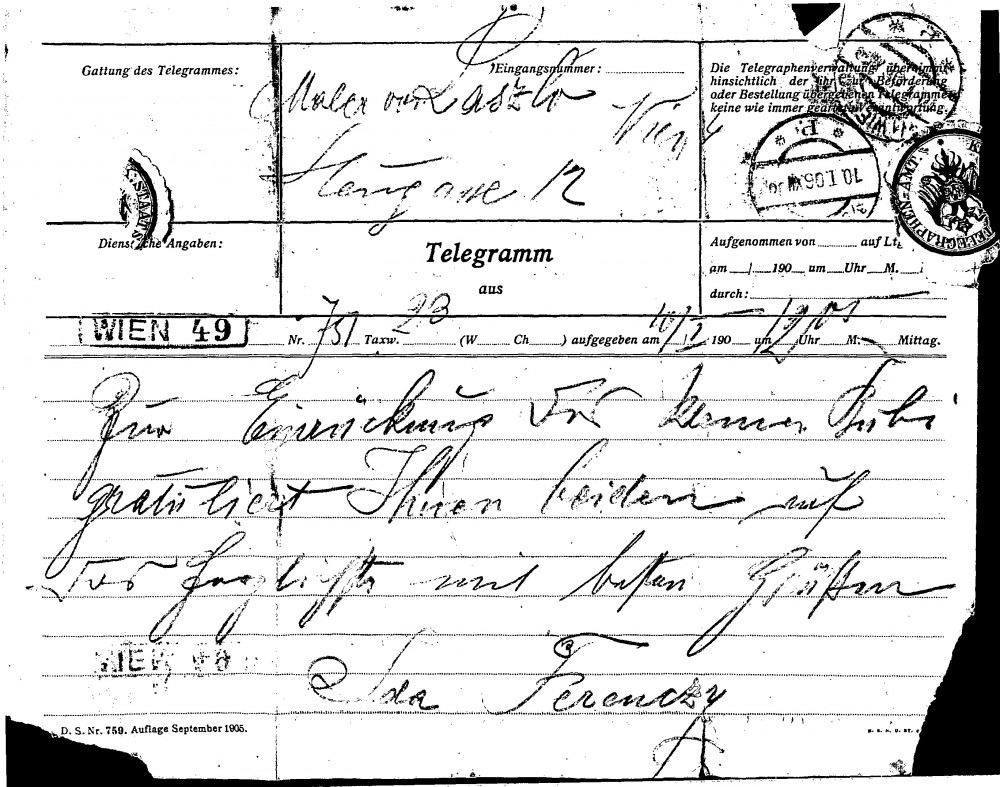 Gattung des Telegrammes:
Eingangsnummer:
Maler von László
Wien
12
Die Telegraphenverwaltung übernimmt
hinsichtlich der ihr zur Beförderung
oder Bestellung übergebenen Telegramme
keine wie immer geartete Verantwortung.
P.
10.I.06
TELEGRAPHEN-AMT.
STAATS
Dienstliche Angaben:
Telegramm
aus
Aufgenommen von auf Ltg.
am / 190 um Uhr M.
durch:
WIEN 49
Nr. 751 Taxw. 23 (W Ch ) aufgegeben am 10/I 190 um 12 Uhr 05 M. Mittag.
Zur Einrückung des kleinen Bubi
gratuliert Ihnen beiden auf
das herzlichste mit besten Grüßen
WIEN 49
Ida Ferenczy
D. S. Nr. 759. Auflage September 1905.